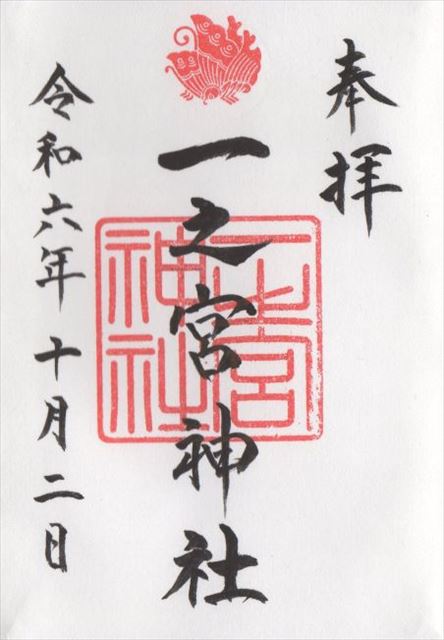 奉拝
一之宮神社
一之宮神社
令和六年十月二日